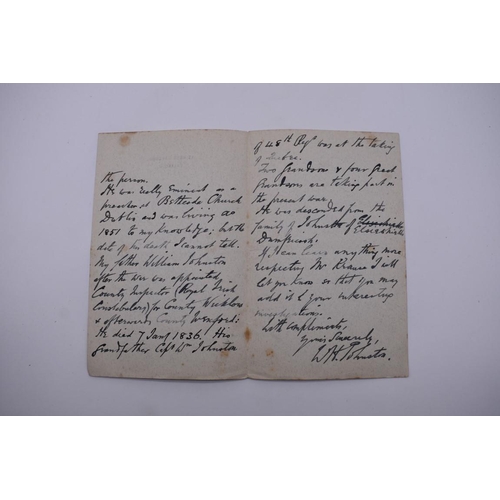 the person.
He was really Eminent as a
preacher at Bethesda Church
Dublin and was living as
1851 to my knowledge; but the
date of his death I cannot tell.
My father William Johnston
after the war was appointed
County Inspector (Royal Irish
Constabulary) for County Wicklow
& afterwards County Wexford:
He died 7 Jany 1836. His
grandfather Capt Wm Johnston
of 48th Regt was at the taking
of Quebec.
Two Grandsons & four Great
Grandsons are taking part in
the present war.
He was descended from the
family of Johnston of Elsieshields
Dumfriessh:
If I can learn anything more
respecting Mr Krause I will
let you know so that you may
add it to your interesting
inscription.
With compliments,
Yours Sincerely,
W H. Johnston.